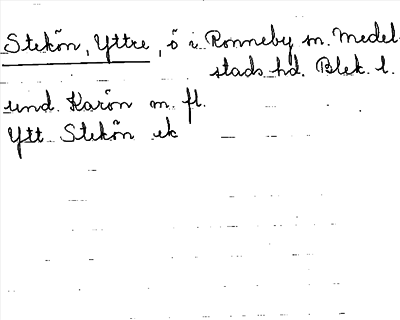 Stekön, Yttre, ö i Ronneby sn. Medel-
stads hd. Blek. l.
und. Karön m. fl.
Ytt Stekön ek